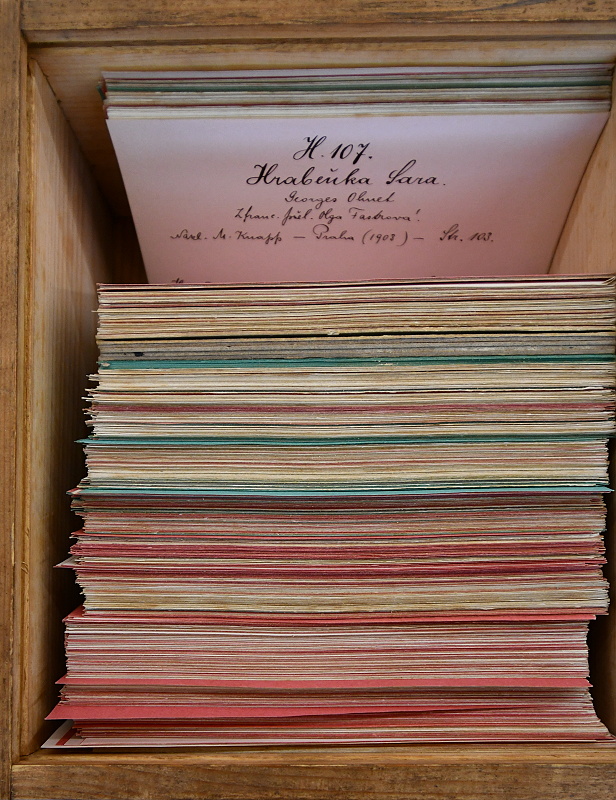 H. 107.
Hraběnka Sara.
Georges Ohnet
Z franc. přel. Olga Fastrová.
Nakl. M. Knapp — Praha (1903) — Str. 103.